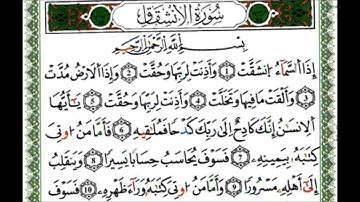 سُورَةُ الانشِقَاقِ
بِسْمِ ٱللَّهِ ٱلرَّحْمَٰنِ ٱلرَّحِيمِ
إِذَا ٱلسَّمَآءُ ٱنشَقَّتْ ١ وَأَذِنَتْ لِرَبِّهَا وَحُقَّتْ ٢ وَإِذَا ٱلْأَرْضُ مُدَّتْ
٣ وَأَلْقَتْ مَا فِيهَا وَتَخَلَّتْ ٤ وَأَذِنَتْ لِرَبِّهَا وَحُقَّتْ ٥ يَٰٓأَيُّهَا
ٱلْإِنسَٰنُ إِنَّكَ كَادِحٌ إِلَىٰ رَبِّكَ كَدْحًا فَمُلَٰقِيهِ ٦ فَأَمَّا مَنْ أُوتِىَ
كِتَٰبَهُۥ بِيَمِينِهِۦ ٧ فَسَوْفَ يُحَاسَبُ حِسَابًا يَسِيرًا ٨ وَيَنقَلِبُ
إِلَىٰٓ أَهْلِهِۦ مَسْرُورًا ٩ وَأَمَّا مَنْ أُوتِىَ كِتَٰبَهُۥ وَرَآءَ ظَهْرِهِۦ ١٠ فَسَوْفَ